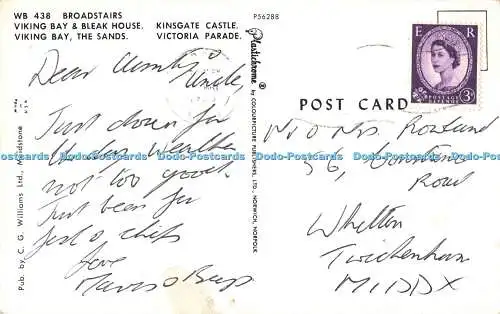 WB 438 BROADSTAIRS
VIKING BAY & BLEAK HOUSE. KINSGATE CASTLE.
VIKING BAY, THE SANDS. VICTORIA PARADE.
P56288
Dear Aunty &
Uncle,
Just down for
the day weather
not too good
Just been for
fish & chips
love
Pub. by C. G. Williams Ltd., Maidstone
Plastichrome ® by COLOURPICTURE PUBLISHERS, LTD., NORWICH, NORFOLK
POST CARD
E R
POSTAGE REVENUE
3D
Mr & Mrs
36,
Road
Whitton
Twickenham
MIDDX
Dodo-Postcards Dodo-Postcards Dodo-Postcards Dodo-Postcards Dodo-Postcards Dodo-Postcards